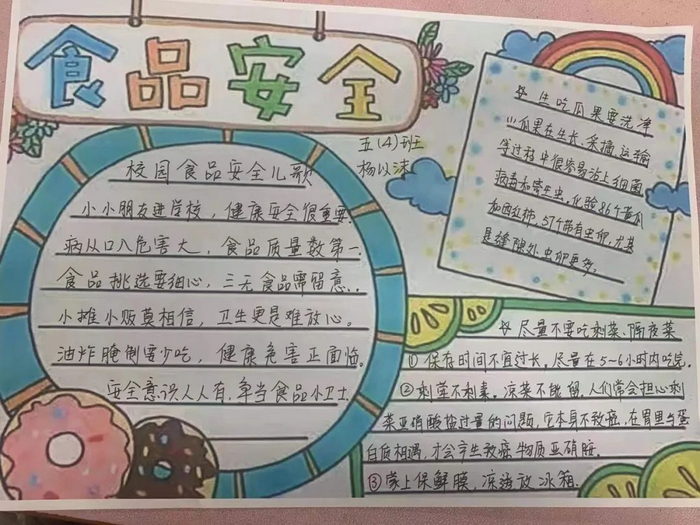 食品安全
五(4)班
杨以沫
校园食品安全儿歌
小小朋友进学校，健康安全很重要
病从口入危害大，食品质量数第一.
食品挑选要细心，三无食品需留意..
小摊小贩莫相信，卫生更是难放心。
油炸腌制要少吃，健康危害正面临.
安全意识人人有，争当食品小卫士
☆生吃瓜果要洗净
瓜果在生长、采摘、运输
等过程中很容易沾上细菌
病毒和寄生虫，化验36个黄瓜
加西红柿，57个带有虫卵，尤其
是缝隙处，虫卵更多。
☆尽量不要吃剩菜、隔夜菜
①保存时间不宜过长，尽量在5-6小时内吃完.
②剩荤不剩素。凉菜不能留，人们常会担心剩
菜亚硝酸盐过量的问题，它本身不致癌，在胃里与蛋
白质相遇，才会产生致癌物质亚硝胺.
③蒙上保鲜膜，凉透放冰箱.